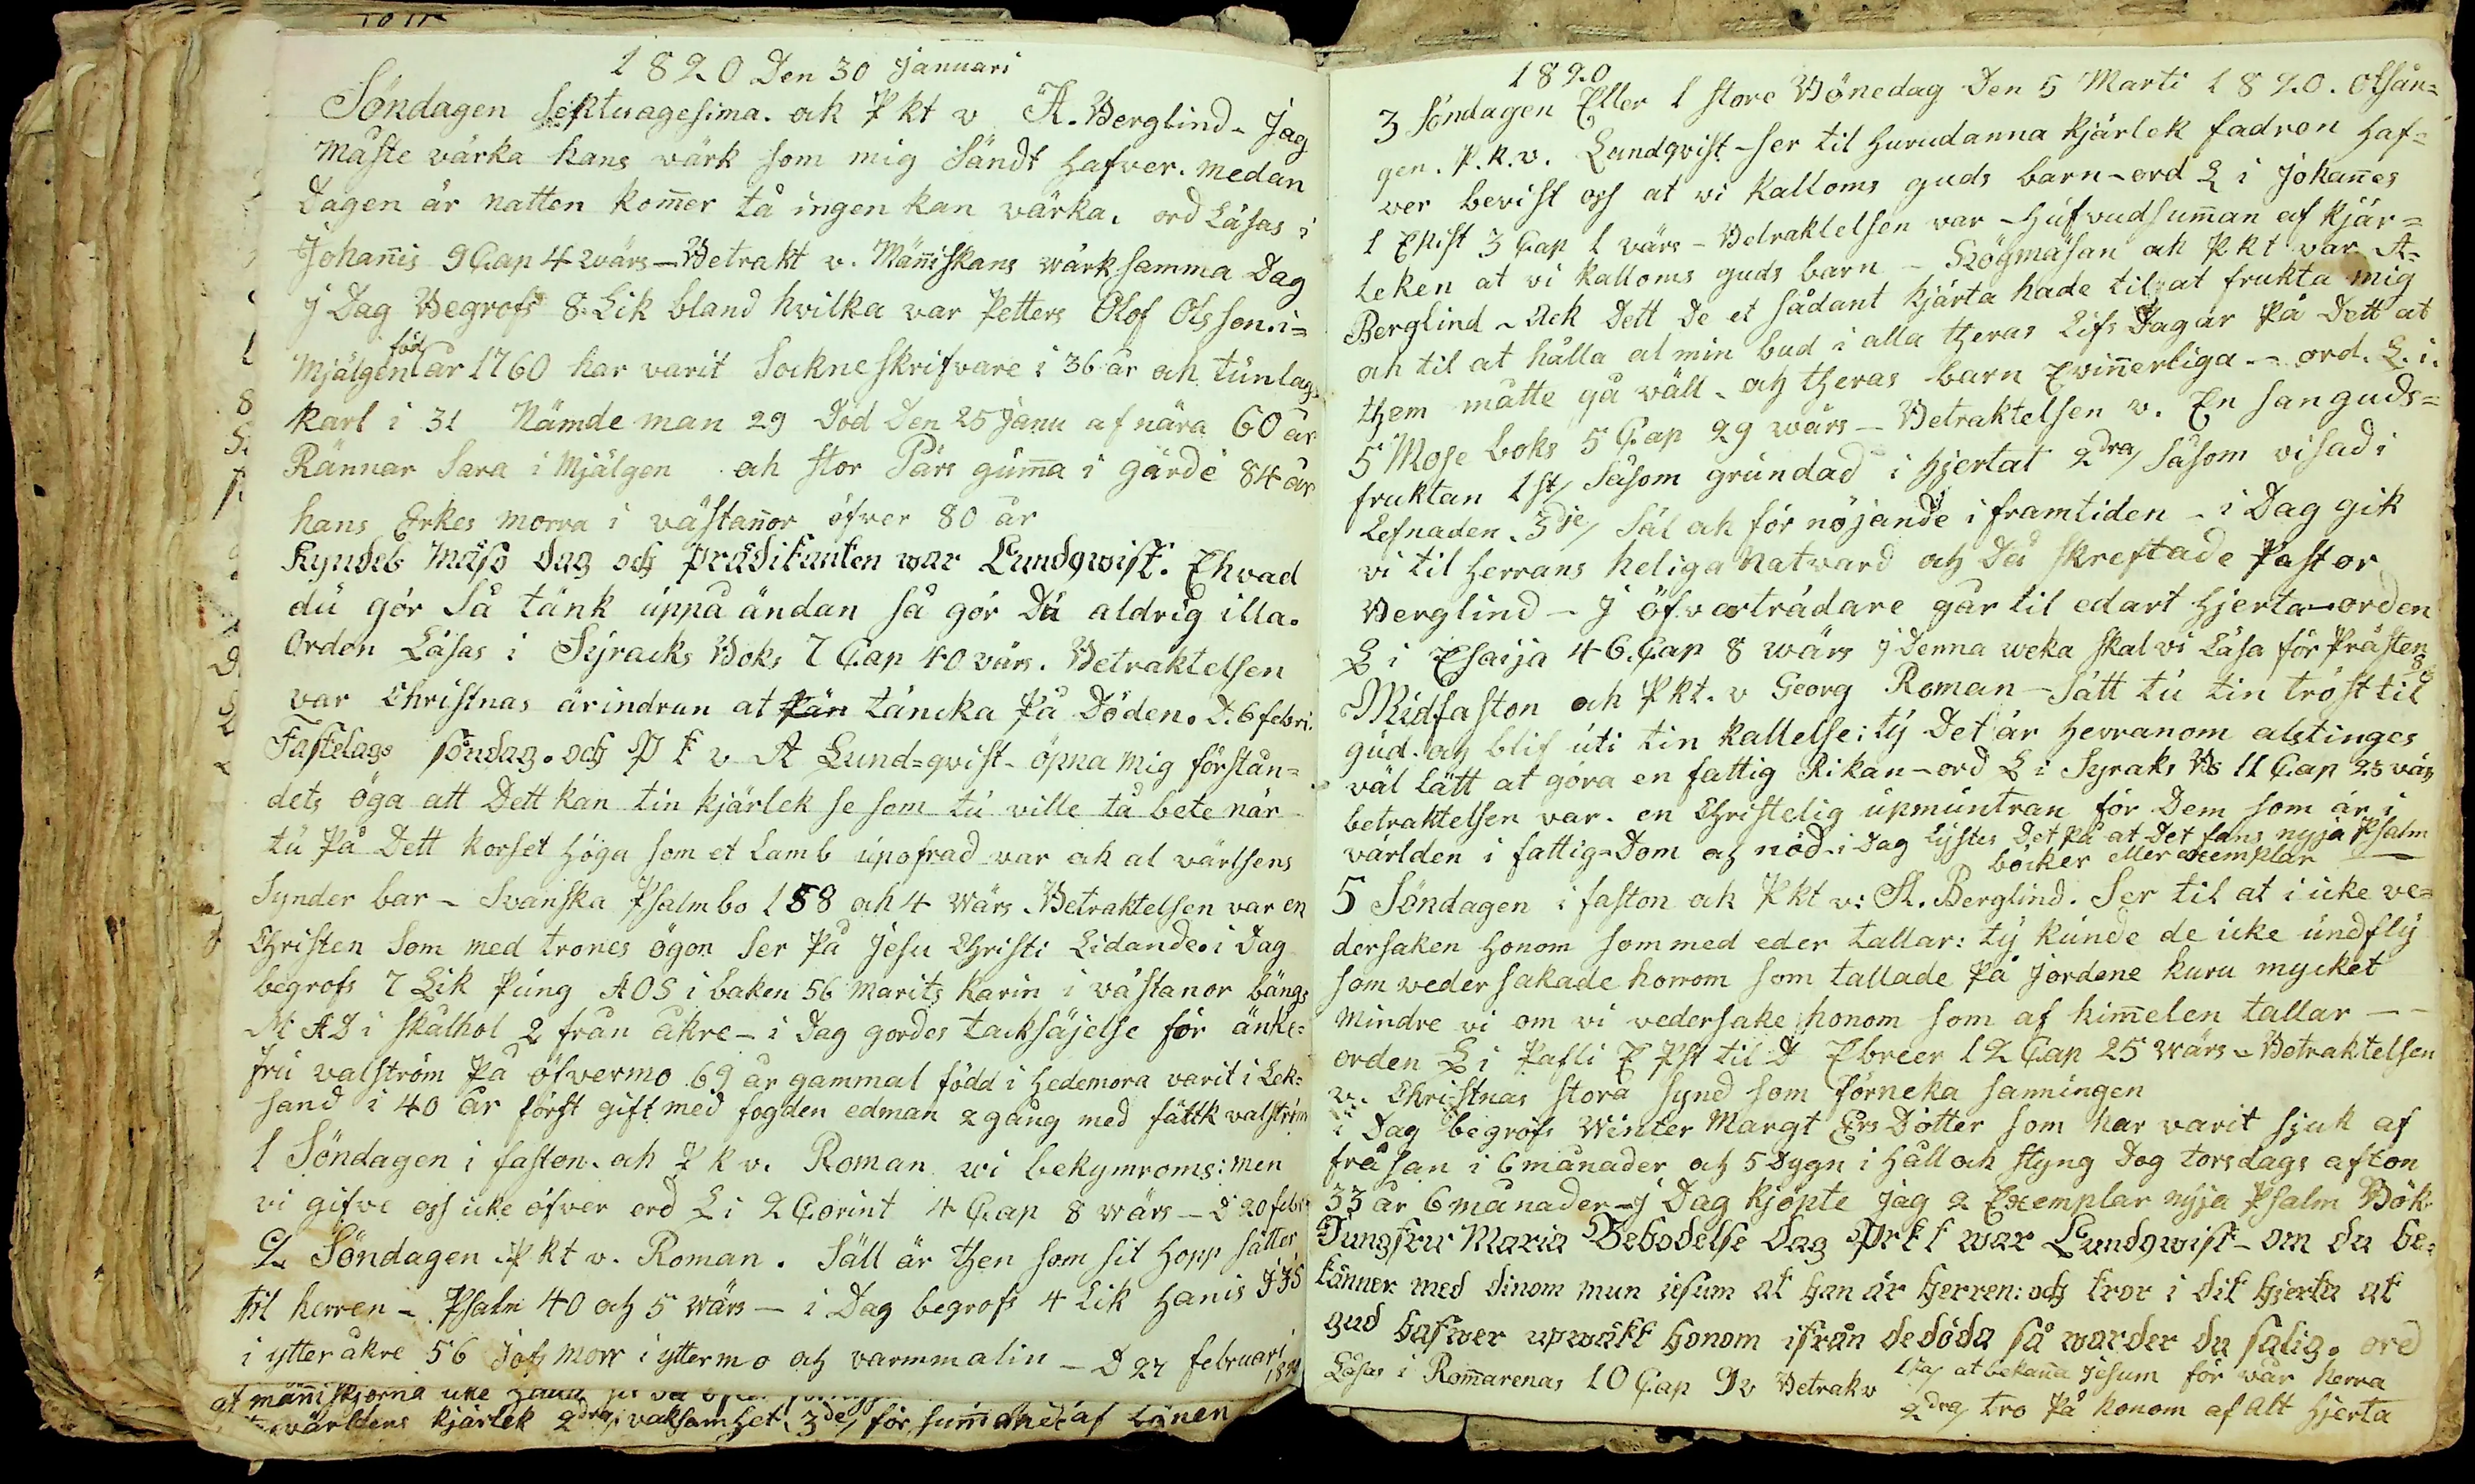 1820 Den 30 Januari
Söndagen Septuagesima. ok Pkt v A. Berglind - Jag
Måste värka hans värk som mig Sändt hafver. medan
Dagen är natten kom̅er tå ingen kan värka. ord Läsas i
Johan̅is 9 Cap 4 wärs - Betrakt v. Män̅iskans wärk samma Dag
J Dag Begrofs 8. Lik bland hvilka var Petters Olof Olsson. i=
föd
Mjälgen år 1760 har varit Sockneskrifvare i 36 år och tünlags
karl i 31 Nämde man 29 Död Den 25 Janu af nära 60 år
Rännar Sara i Mjälgen och stor Pärs gum̅a i gärde 84 år
hans Erkes morra i västan̅or öfver 80 år
Kyndels Mäso dag och prädikanten war Lundqwist. Ehvad
dü gör Så tänk üppå ändan så gör Dü aldrig illa.
Orden Läsas i Syracks Boks 7 Cap 40 värs. Betraktelsen
var Christnas ärindran at täncka På Döden. D. 6 febri.
Fastelags söndag. och P k v A Lund=qvist - öpna mig förstån=
dets öga att Dett kan tin kjärlek se som tü ville tå bete när
tü På Dett korset höga som et Lamb üpofrad var ok al värlsens
Synder bar - Svanska Psalmbo 158 och 4 Wärs. Betraktelsen var en
Christen Som med trones ögon Ser På Jesu Christi Lidande. i Dag
begrofs 7 Lik Püng AOS i baken 56 Marits Karin i västanor bängs
M AD i skålhol 2 från åkre - i Dag gordes tacksäjelse för änke=
frü valström På öfvermo 69 år gammal född i Hedemora varit i Lek=
sand i 40 år först gift med fogden edman 2 gång med fältk valström
1 Söndagen i faston. och P k v. Roman wi bekymroms: men
vi gifve oss icke öfver ord L i 2 Corint 4 Cap 8 wärs - D 20 febr
2 Söndagen Pkt v. Roman. Säll är then som sit Hopp sätter
til herren - Psalm 40 och 5 wärs - i Dag begrofs 4 Lik Hanis JJS
i ytteråkre 56 Jofs morr i yttermo och varmmalin - D 27 februari
1820
at män̅iskjorna icke
världens kjärlek 2dra/ vaksamhet 3de/ försummande af bönen
1820
3 Söndagen Eller 1 store Bönedag Den 5 Marti 1820. otsån=
gen. P.k.v. Lundqvist - ser til Hurudanna kjärlek fadren Haf=
ver bevist oss at vi kalloms guds barn - ord L i Johan̅es
1 Epist 3 Cap 1 värs - Betraktelsen var - Hüfvudsum̅an af kjär=
leken at vi kalloms guds barn - Högmäsan ok Pkt var A=
Berglind - Ack Dett De et sådant hjärta hade til at frukta mig
och til at hålla al min bud i alla theras Lifs Dagar På Dett at
them måtte gå väll. och theras barn Evin̅erliga - ord. L. i.
5 Mose boks 5 Cap 29 wärs - Betraktelsen v. En san guds=
fruktan 1st/ Såsom gründad i Hjertat 2dra/ Såsom visad i
Lefnaden. 3dje/ Säl ok för nöjande i framtiden - i Dag gik
vi til Herrans heliga Natvard och Då skreftade Pastor
Berglind - J öfverträdare går til edart Hjerta - orden
L i Esaija 46. Cap 8 wärs J Denna weka skal vi Läsa för Prästen
Midfaston ok Pkt. v Georg Roman - Sätt tü tin tröst til
güd. och blif üti tin kallelse: ty Det är Herranom alstinges
väl lätt at göra en fattig Rikan - ord L i Syraks Bs 11 Cap 23 värs
betraktelsen var. en Christelig üpmüntran för Dem som är i
världen i fattig=Dom och nöd. i Dag Lystes Det På at Det fans nyja Psalm
böcker eller exemplar
5 Söndagen i faston ok Pkt v: A. Berglind. Ser til at i icke ve=
dersaken Honom som med eder tallar: ty künde de icke ündfly
som vedersakade honom som tallade På Jordene huru mycket
Mindre vi om vi vedersake honom som af him̅elen tallar - -
orden L i Pafli E Pst til D Ebreer 12 Cap 25 Wärs - Betraktelsen
v. Christnas stora synd som förneka sanningen
i Dag begrofs Winter Margt Ers Dotter som har varit sjuk af
fråsan i 6 månader och 5 Dygn i Håll ok styng Dog torsdags afton
33 år 6 månader - J Dag kjöpte jag 2 Exemplar nyja Psalm Bök
Jungfru Maria Bebodelse Dag Prkt war Lundqwist - om du be=
känner med dinom mun iesum at han är herren: och tror i dit hjerta at
gud hafwer upwäkt honom ifrån de döda så warder du salig. ord
Läsas i Rom̅arenas 10 Cap 9 v Betrak v 1sta/ at bekan̅a Jesum för vår Herra
2dra/ tro På honom af Alt Hjerta